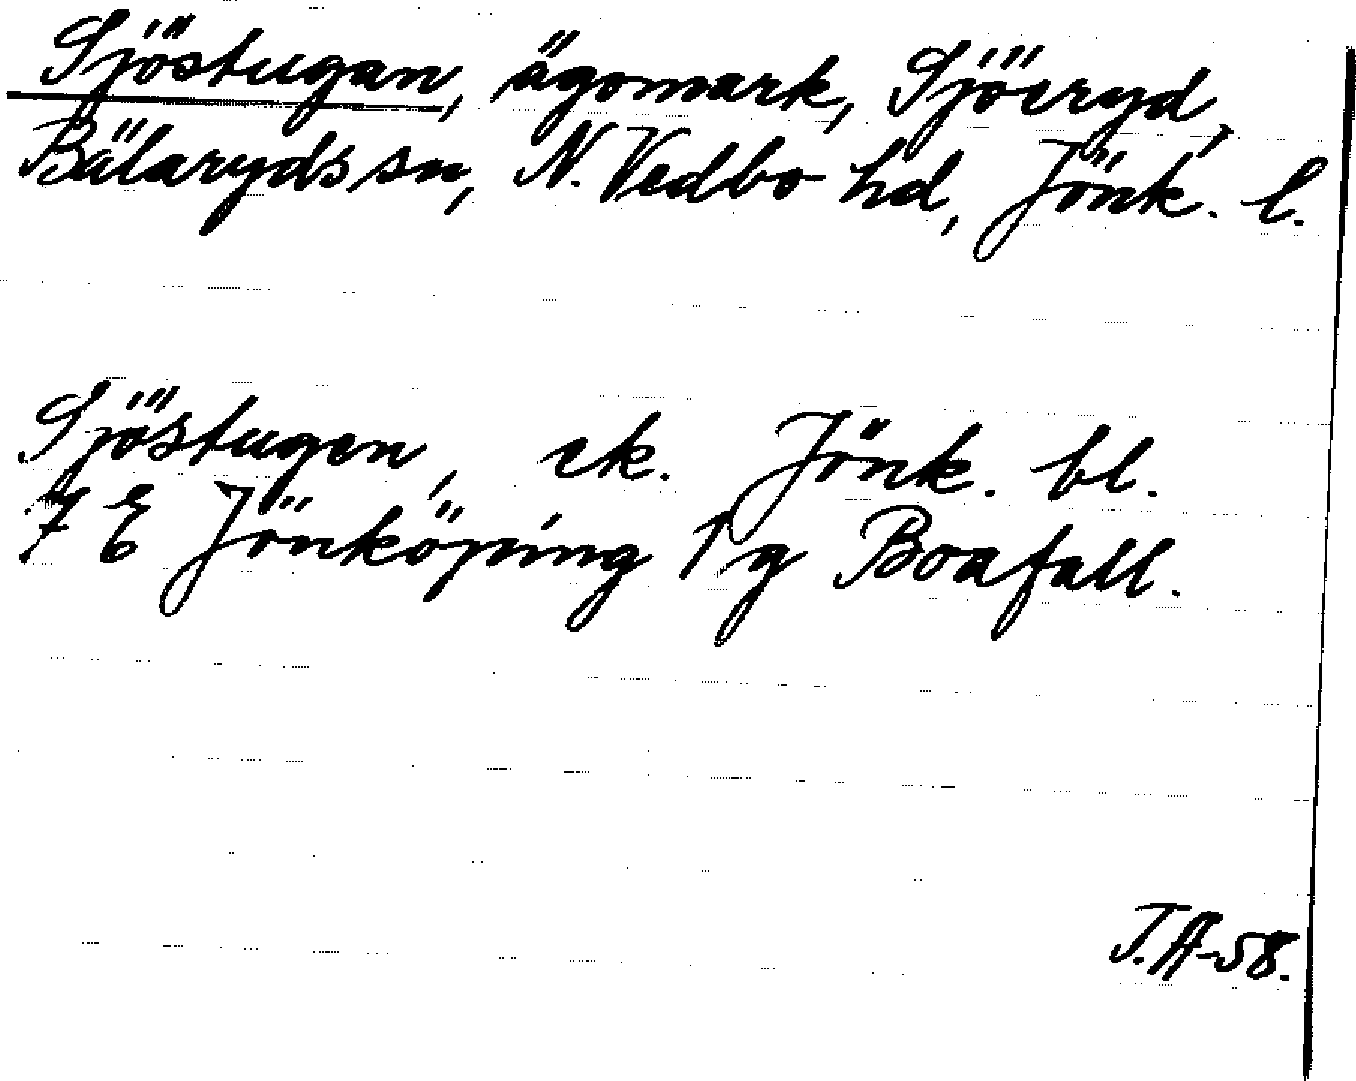 Sjöstugan, ägomark, Sjöeryd,
Bälaryds sn, N. Vedbo hd, Jönk. l.
Sjöstugan, ek. Jönk. bl.
7 E Jönköping 1 g Boafall.
J.A-58.